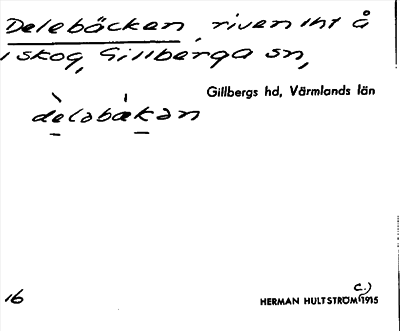 Delebäcken, riven int å
i skog, Gillberga sn,
Gillbergs hd, Värmlands län
dèləbækən
16
HERMAN HULTSTRÖM (c.) 1915